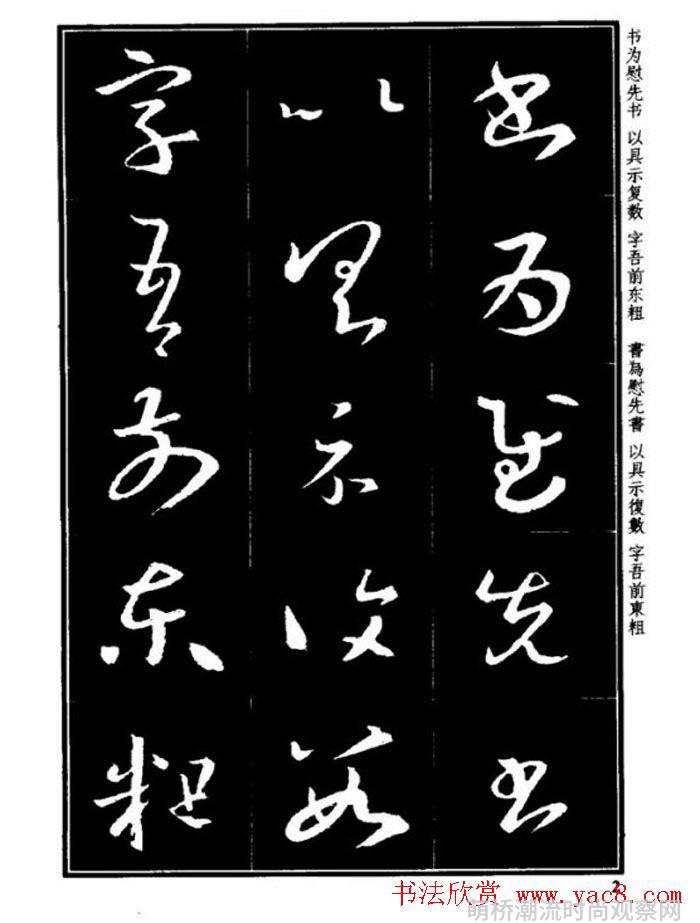 书为慰先书 以具示复数 字吾前东粗
書為慰先書 以具示復數 字吾前東粗
書為慰先書
以具示復數
字吾前東粗
2
书法欣赏 www.yac8.com
萌桥潮流时尚观察网